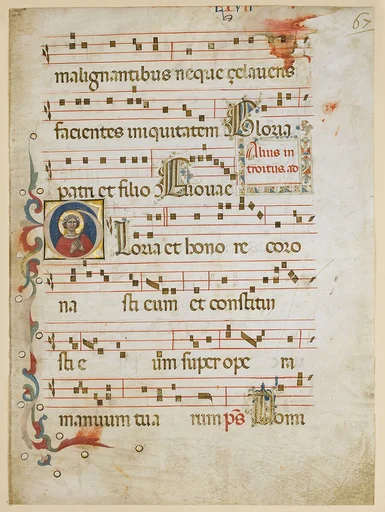 LXVII
67
malignantibus neque zelaveris
facientes iniquitatem Gloria
Alius in
troitus. ad
patri et filio Quoniam
Gloria et hono re coro
na sti eum et constitui
sti e um super ope ra
manuum tua rum ps Domi